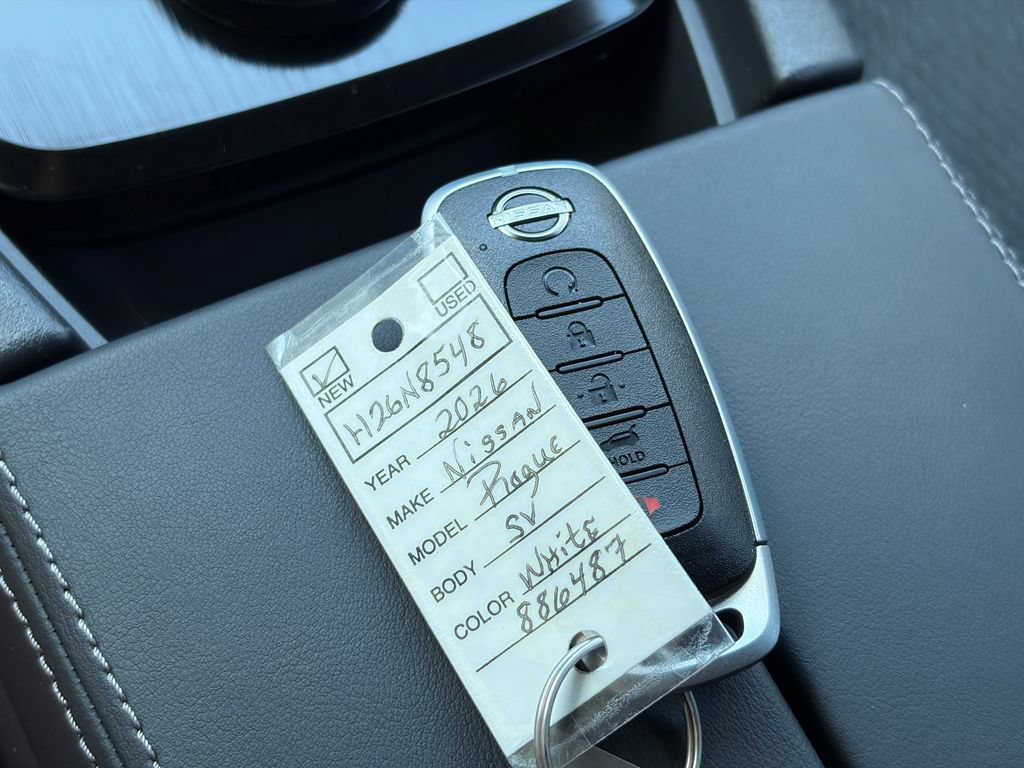 NISSAN
HOLD
USED
NEW
H26N8548
YEAR 2026
MAKE Nissan
MODEL Rogue
BODY SV
COLOR White
886487